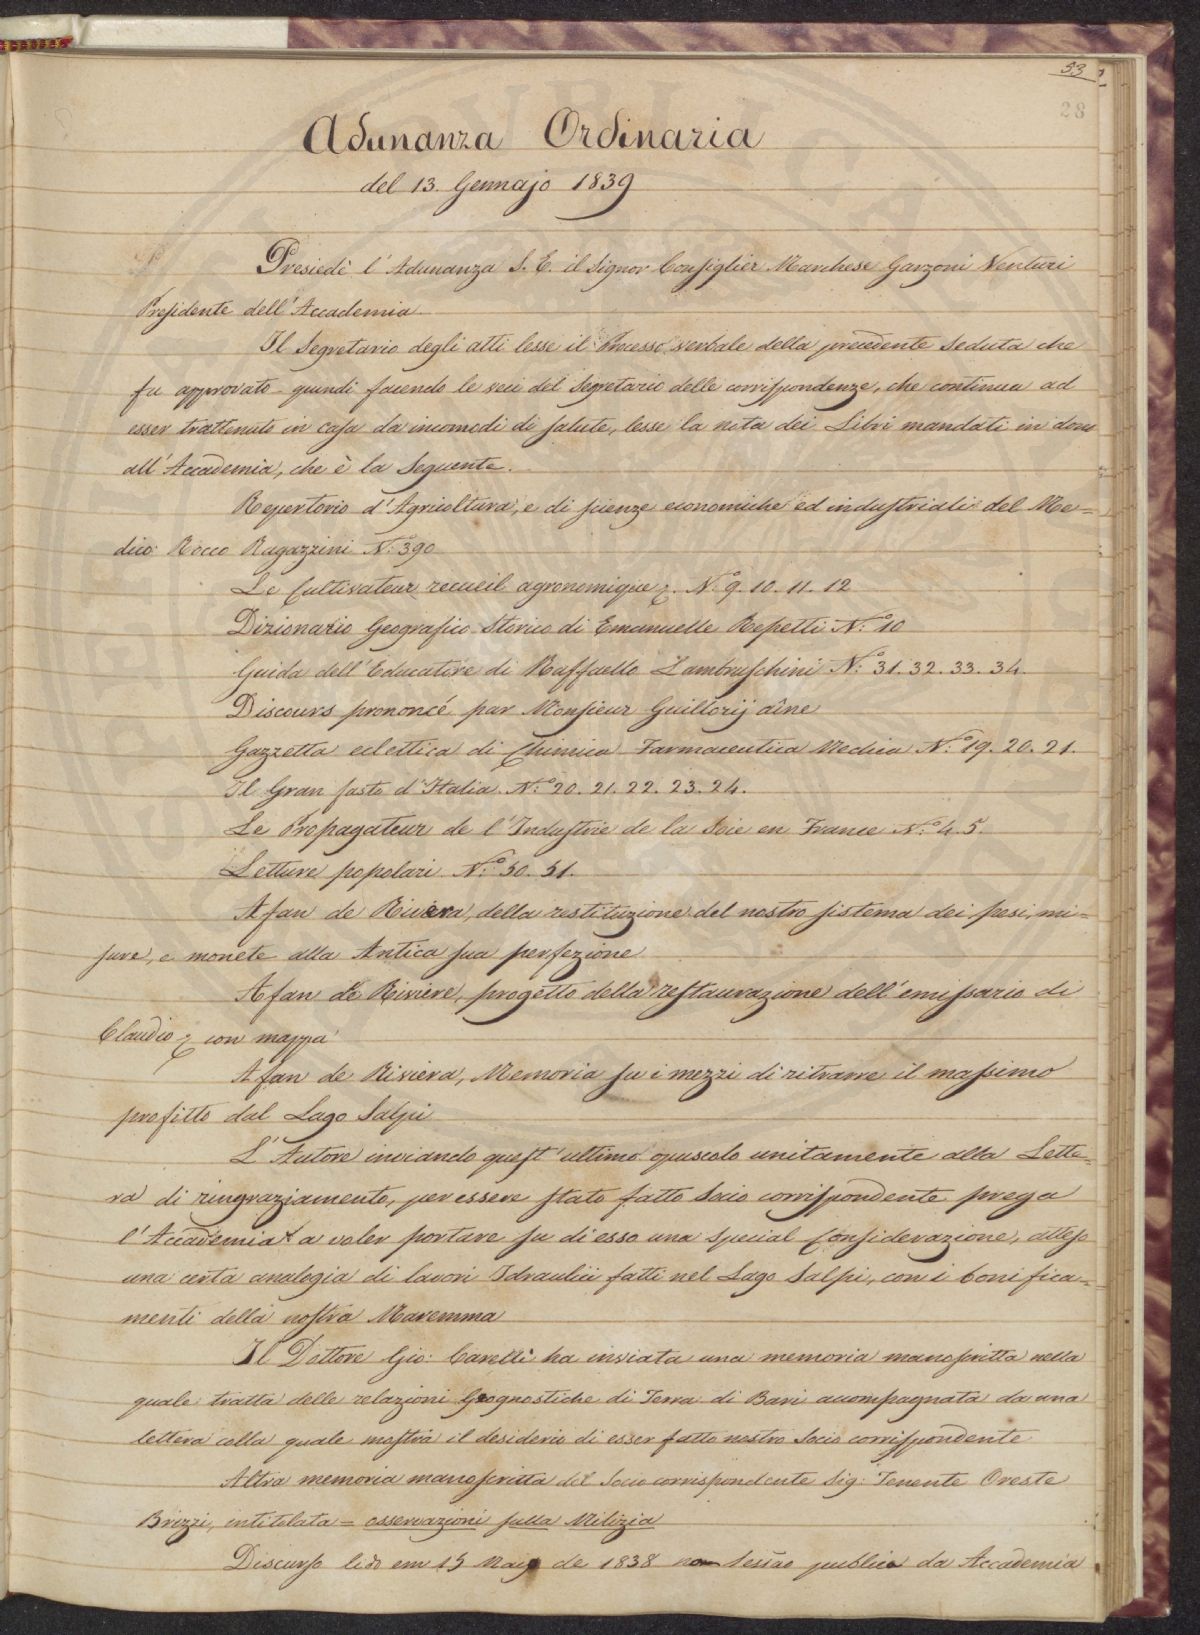 53
28
Adunanza Ordinaria
del 13. Gennajo 1839
Presiedè l'Adunanza S. E. il Signor Consiglier Marchese Garzoni Venturi
Presidente dell'Accademia.
Il Segretario degli atti lesse il Processo verbale della precedente Seduta che
fu approvato quindi facendo le veci del Segretario delle corrispondenze, che continua ad
esser trattenuto in casa da incomodi di salute, lesse la nota dei Libri mandati in dono
all'Accademia, che è la Seguente.
Repertorio d'Agricoltura, e di scienze economiche ed industriali del Me=
dico Rocco Ragazzini N.° 390
Le Cultivateur recueil agronomique N.° 9. 10. 11. 12
Dizionario Geografico Storico di Emanuelle Repetti N.° 10
Guida dell'Educatore di Raffaello Lambruschini N.° 31. 32. 33. 34.
Discours prononcé par Monsieur Guillorij aîne
Gazzetta eclettica di Chimica Farmaceutica Medica N.° 19. 20. 21.
Il Gran fasto d'Italia N.° 20. 21. 22. 23. 24.
Le Propagateur de l'Industrie de la Soie en France N.° 4. 5.
Letture popolari N.° 50. 51.
Afan de Rivera, della restituzione del nostro sistema dei pesi, mi=
sure, e monete alla Antica sua perfezione
Afan de Riviere, progetto della restaurazione dell'emissario di
Claudio con mappa
Afan de Riviera, Memoria su i mezzi di ritrarre il massimo
profitto dal Lago Salpi
L'Autore inviando quest'ultimo opuscolo unitamente alla Lette=
ra di ringraziamento, per essere stato fatto Socio corrispondente prega
l'Accademia a voler portare su di esso una special Considerazione, atteso
una certa analogia di lavori Idraulici fatti nel Lago Salpi, con i bonifica=
menti della nostra Maremma
Il Dottore Gio: Carelli ha inviata una memoria manoscritta nella
quale tratta delle relazioni Geognostiche di Terra di Bari accompagnata da una
lettera colla quale mostra il desiderio di esser fatto nostro Socio corrispondente
Altra memoria manoscritta del Socio corrispondente Sig: Tenente Oreste
Brizzi, intitolata = osservazioni sulla Milizia
Discurso lido em 15 Maijo de 1838 na Sessão publica da Accademia